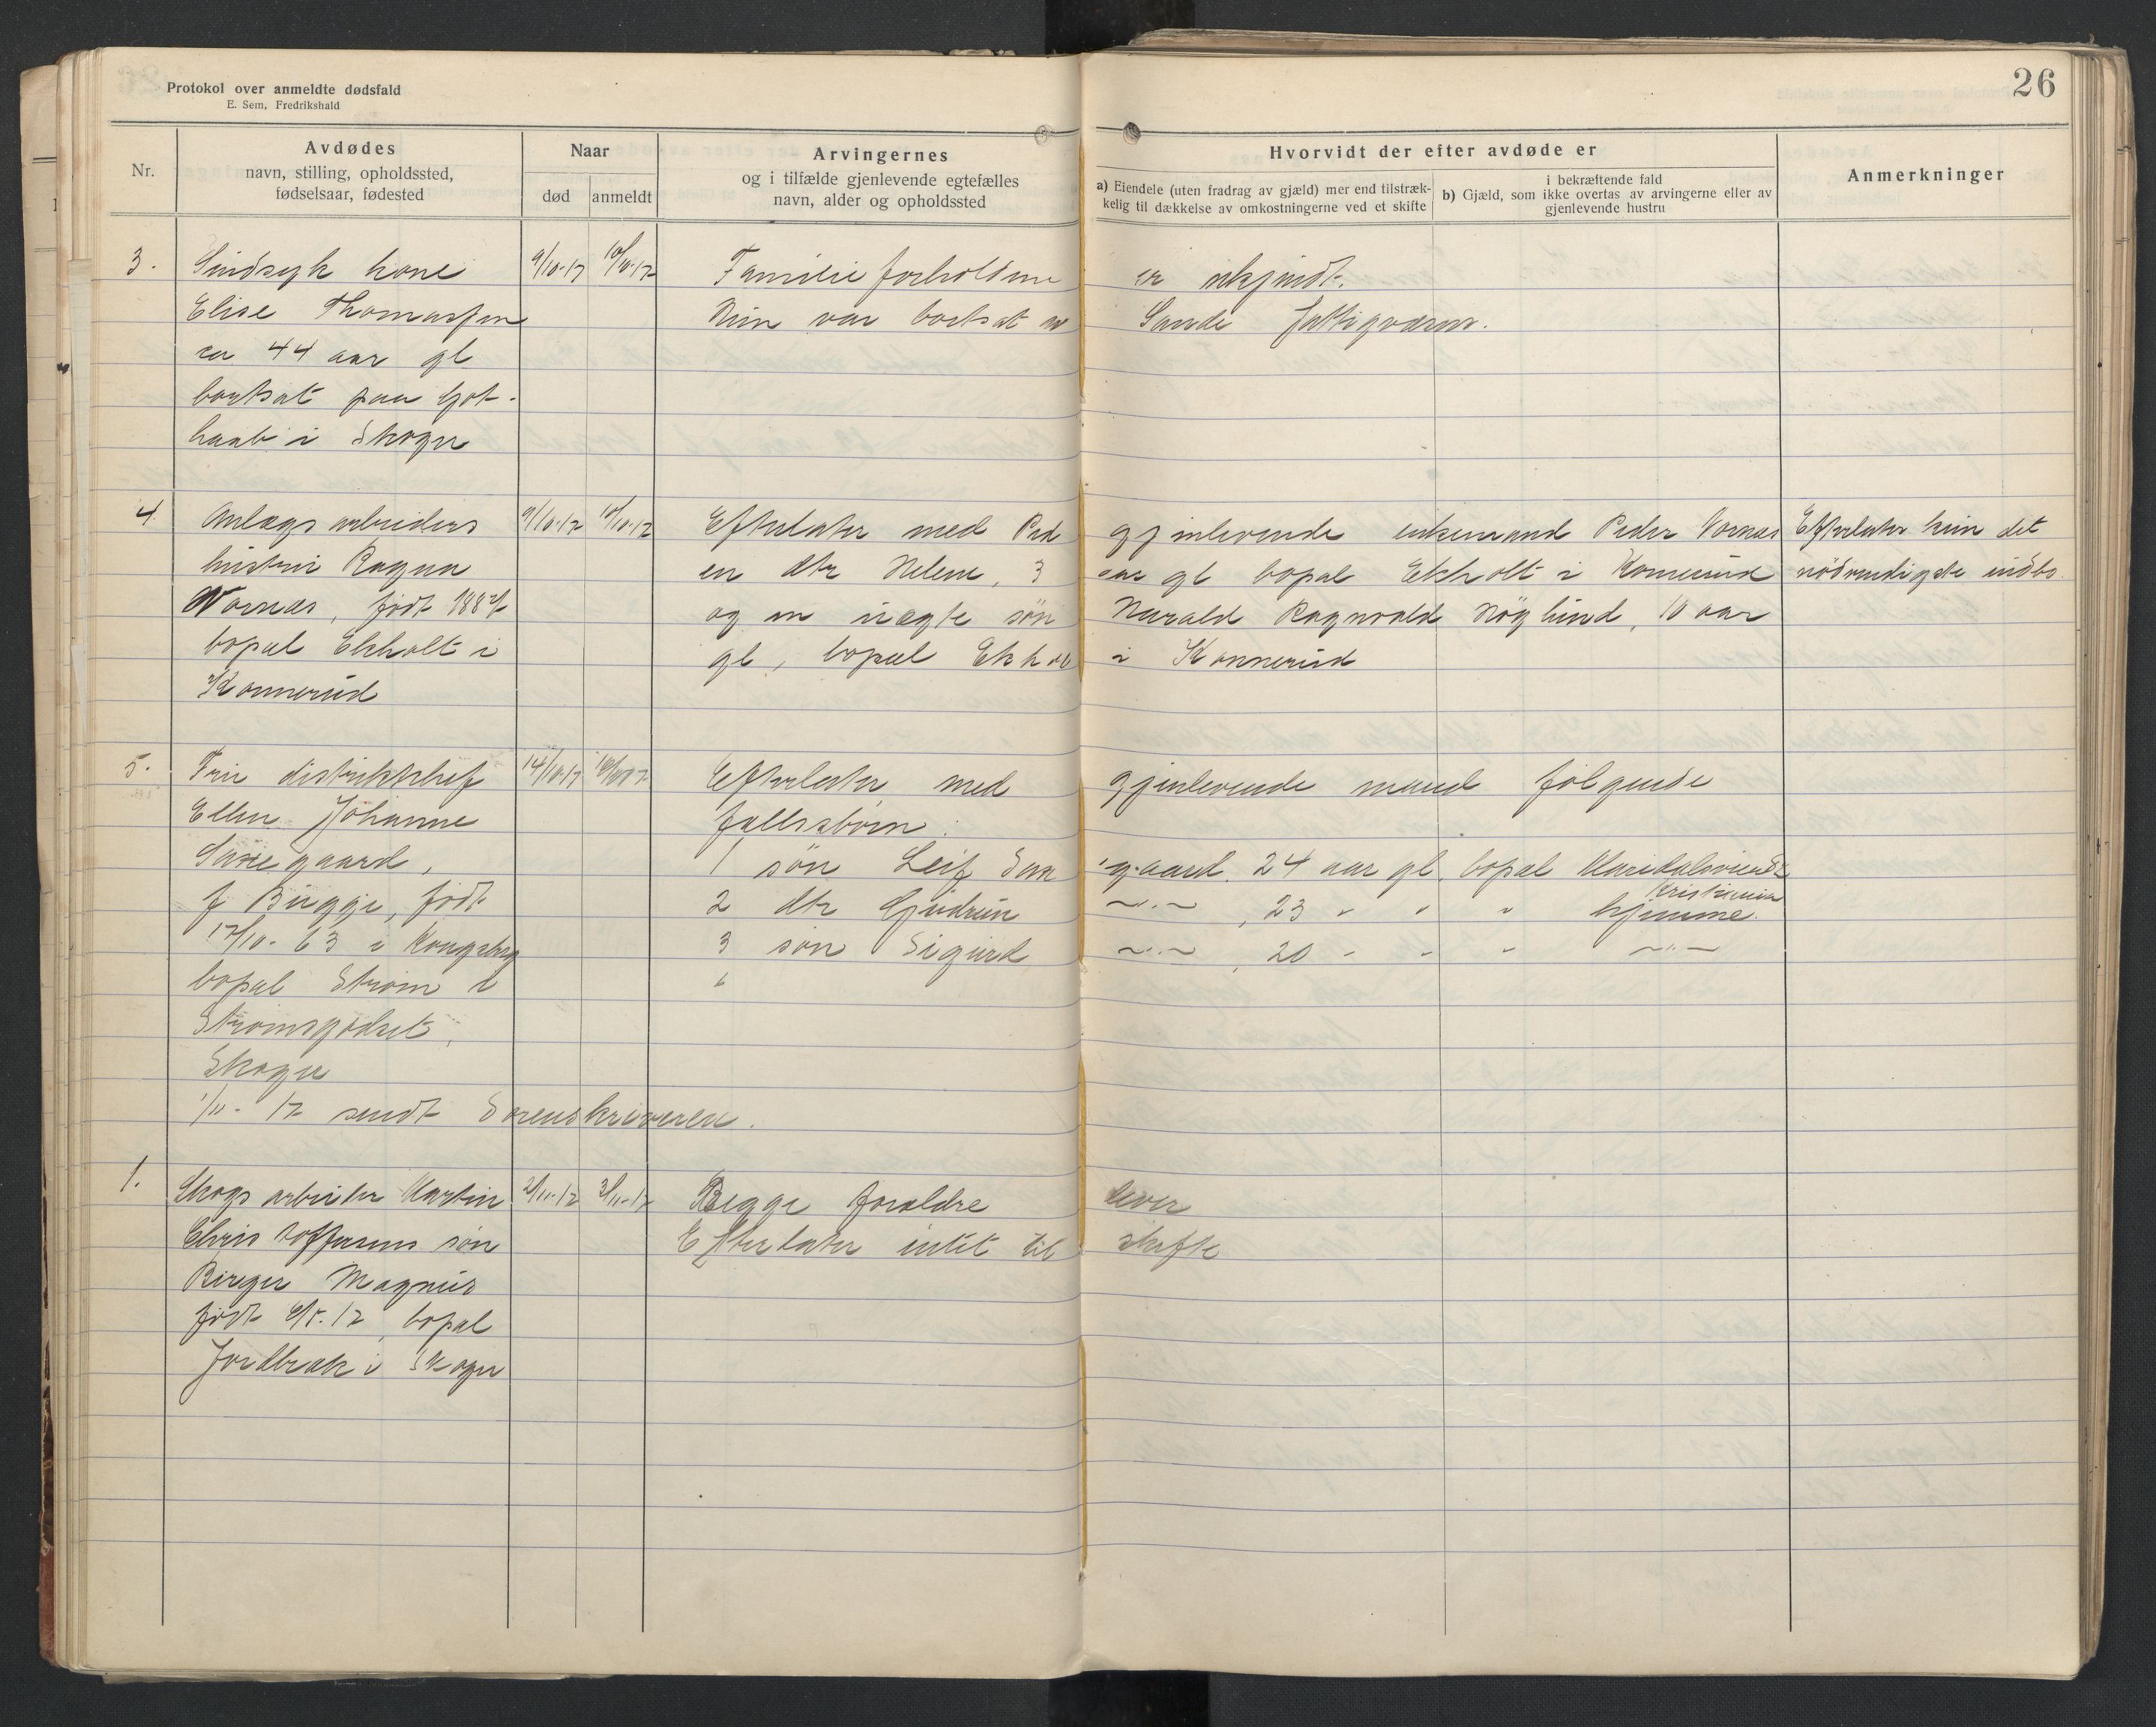 Protokol over anmeldte dødsfald
E. Sem, Fredrikshald
26
Nr.
Avdødes
navn, stilling, opholdssted,
fødselsaar, fødested
Naar
død
anmeldt
Arvingernes
og i tilfælde gjenlevende egtefælles
navn, alder og opholdssted
Hvorvidt der efter avdøde er
a) Eiendele (uten fradrag av gjæld) mer end tilstræk-
kelig til dækkelse av omkostningerne ved et skifte
i bekræftende fald
b) Gjæld, som ikke overtas av arvingerne eller av
gjenlevende hustru
Anmerkninger
3. Sindsyk kone 9/10-17 10/10-17 Familieforholdene er ukjendt.
Elise Thomassen Hun var bortsat av Sande fattigvæsen.
ca 44 aar gl
bortsat paa Got-
haab i Skoger
4. Anlægsarbeiders 9/10-17 10/10-17 Efterlater med gjenlevende enkemand Peder Vornæs Efterlater kun det
hustru Ragna en dtr Helene, 3 aar gl bopæl Ekholt i Konnerud nødvendigste indbo.
Vornæs, født 1887 og en uægte søn Harald Ragnvald Höglund, 10 aar
bopæl Ekholt i gl, bopæl Ekholt i Konnerud
Konnerud
5. Fru distriktschef 14/10-17 Efterlater med gjenlevende mand følgende
Ellen Johanne fællesbørn:
Saxegaard, 1 søn Leif Saxegaard, 24 aar gl. bopæl Maridalsveien
Kristiania
f Bugge, født 2 dtr Gudrun —"— , 23 " " " hjemme.
17/10-63 i Kongsberg 3 søn Sigurd —"— , 20 " " " —"—
bopæl Strøm i
Strømsgodset,
Skoger
1/11-17 sendt Sorenskriveren.
1. Skogsarbeider Martin 2/11-17 3/11-17 Begge forældre lever
Christoffersens søn Efterlater intet til skifte
Birger Magnus
født 6/5-17, bopæl
Jordbræk i Skoger